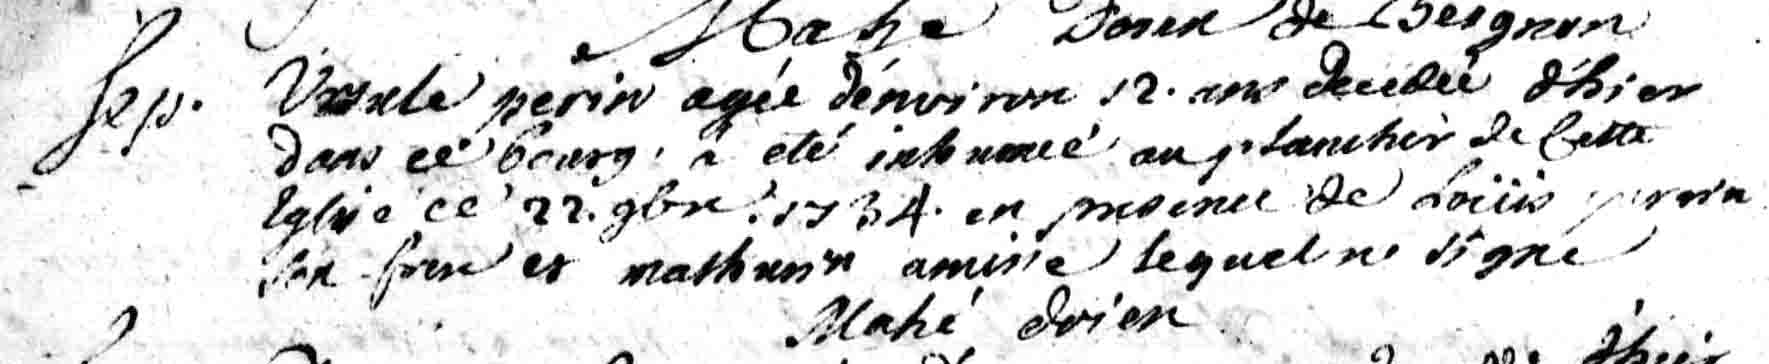 Mahé Doien de Beignon
Sep. Ursule perin agée d'environ 12. ans decedée d'hier
dans cé bourg. a eté inhumée au plancher de Cette
Eglise cé 22. 9bre. 1734. en presence de Loüis perrin
son frere et mathurin amisse lequel ne signe
Mahé doien
d'hier